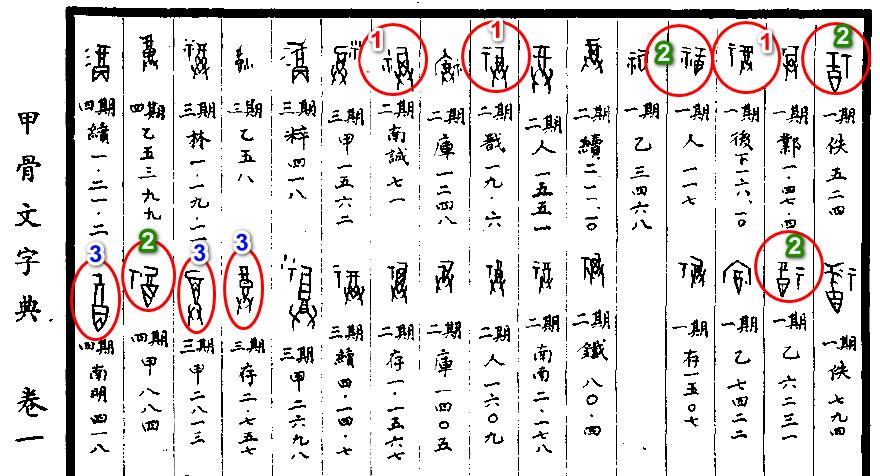 2
一期 佚五二四
一期 佚七九四
一期 鄴一·四七·四
2
一期 乙六二三一
1
一期 後下一六·一〇
一期 乙七四二二
2
一期 人一一七
一期 存一五〇七
一期 乙三四六八
二期 續二
二期 鐵八〇·四
二期 人一五五一
二期 南南二·一七八
1
二期 戩一九·六
二期 人一六〇九
二期 庫一二四八
二期 庫一四〇五
1
二期 南誠七一
二期 存一·一五六七
三期 甲一五六二
三期 續四·一四·七
三期 粹四一八
三期 甲二六九八
三期 乙五八
3
三期 存二·七五七
三期 林一·一九
3
三期 甲二八一三
四期 乙五三九九
2
四期 甲八八四
四期 續一·二一·二
3
四期 南明四一八
甲骨文字典 卷一